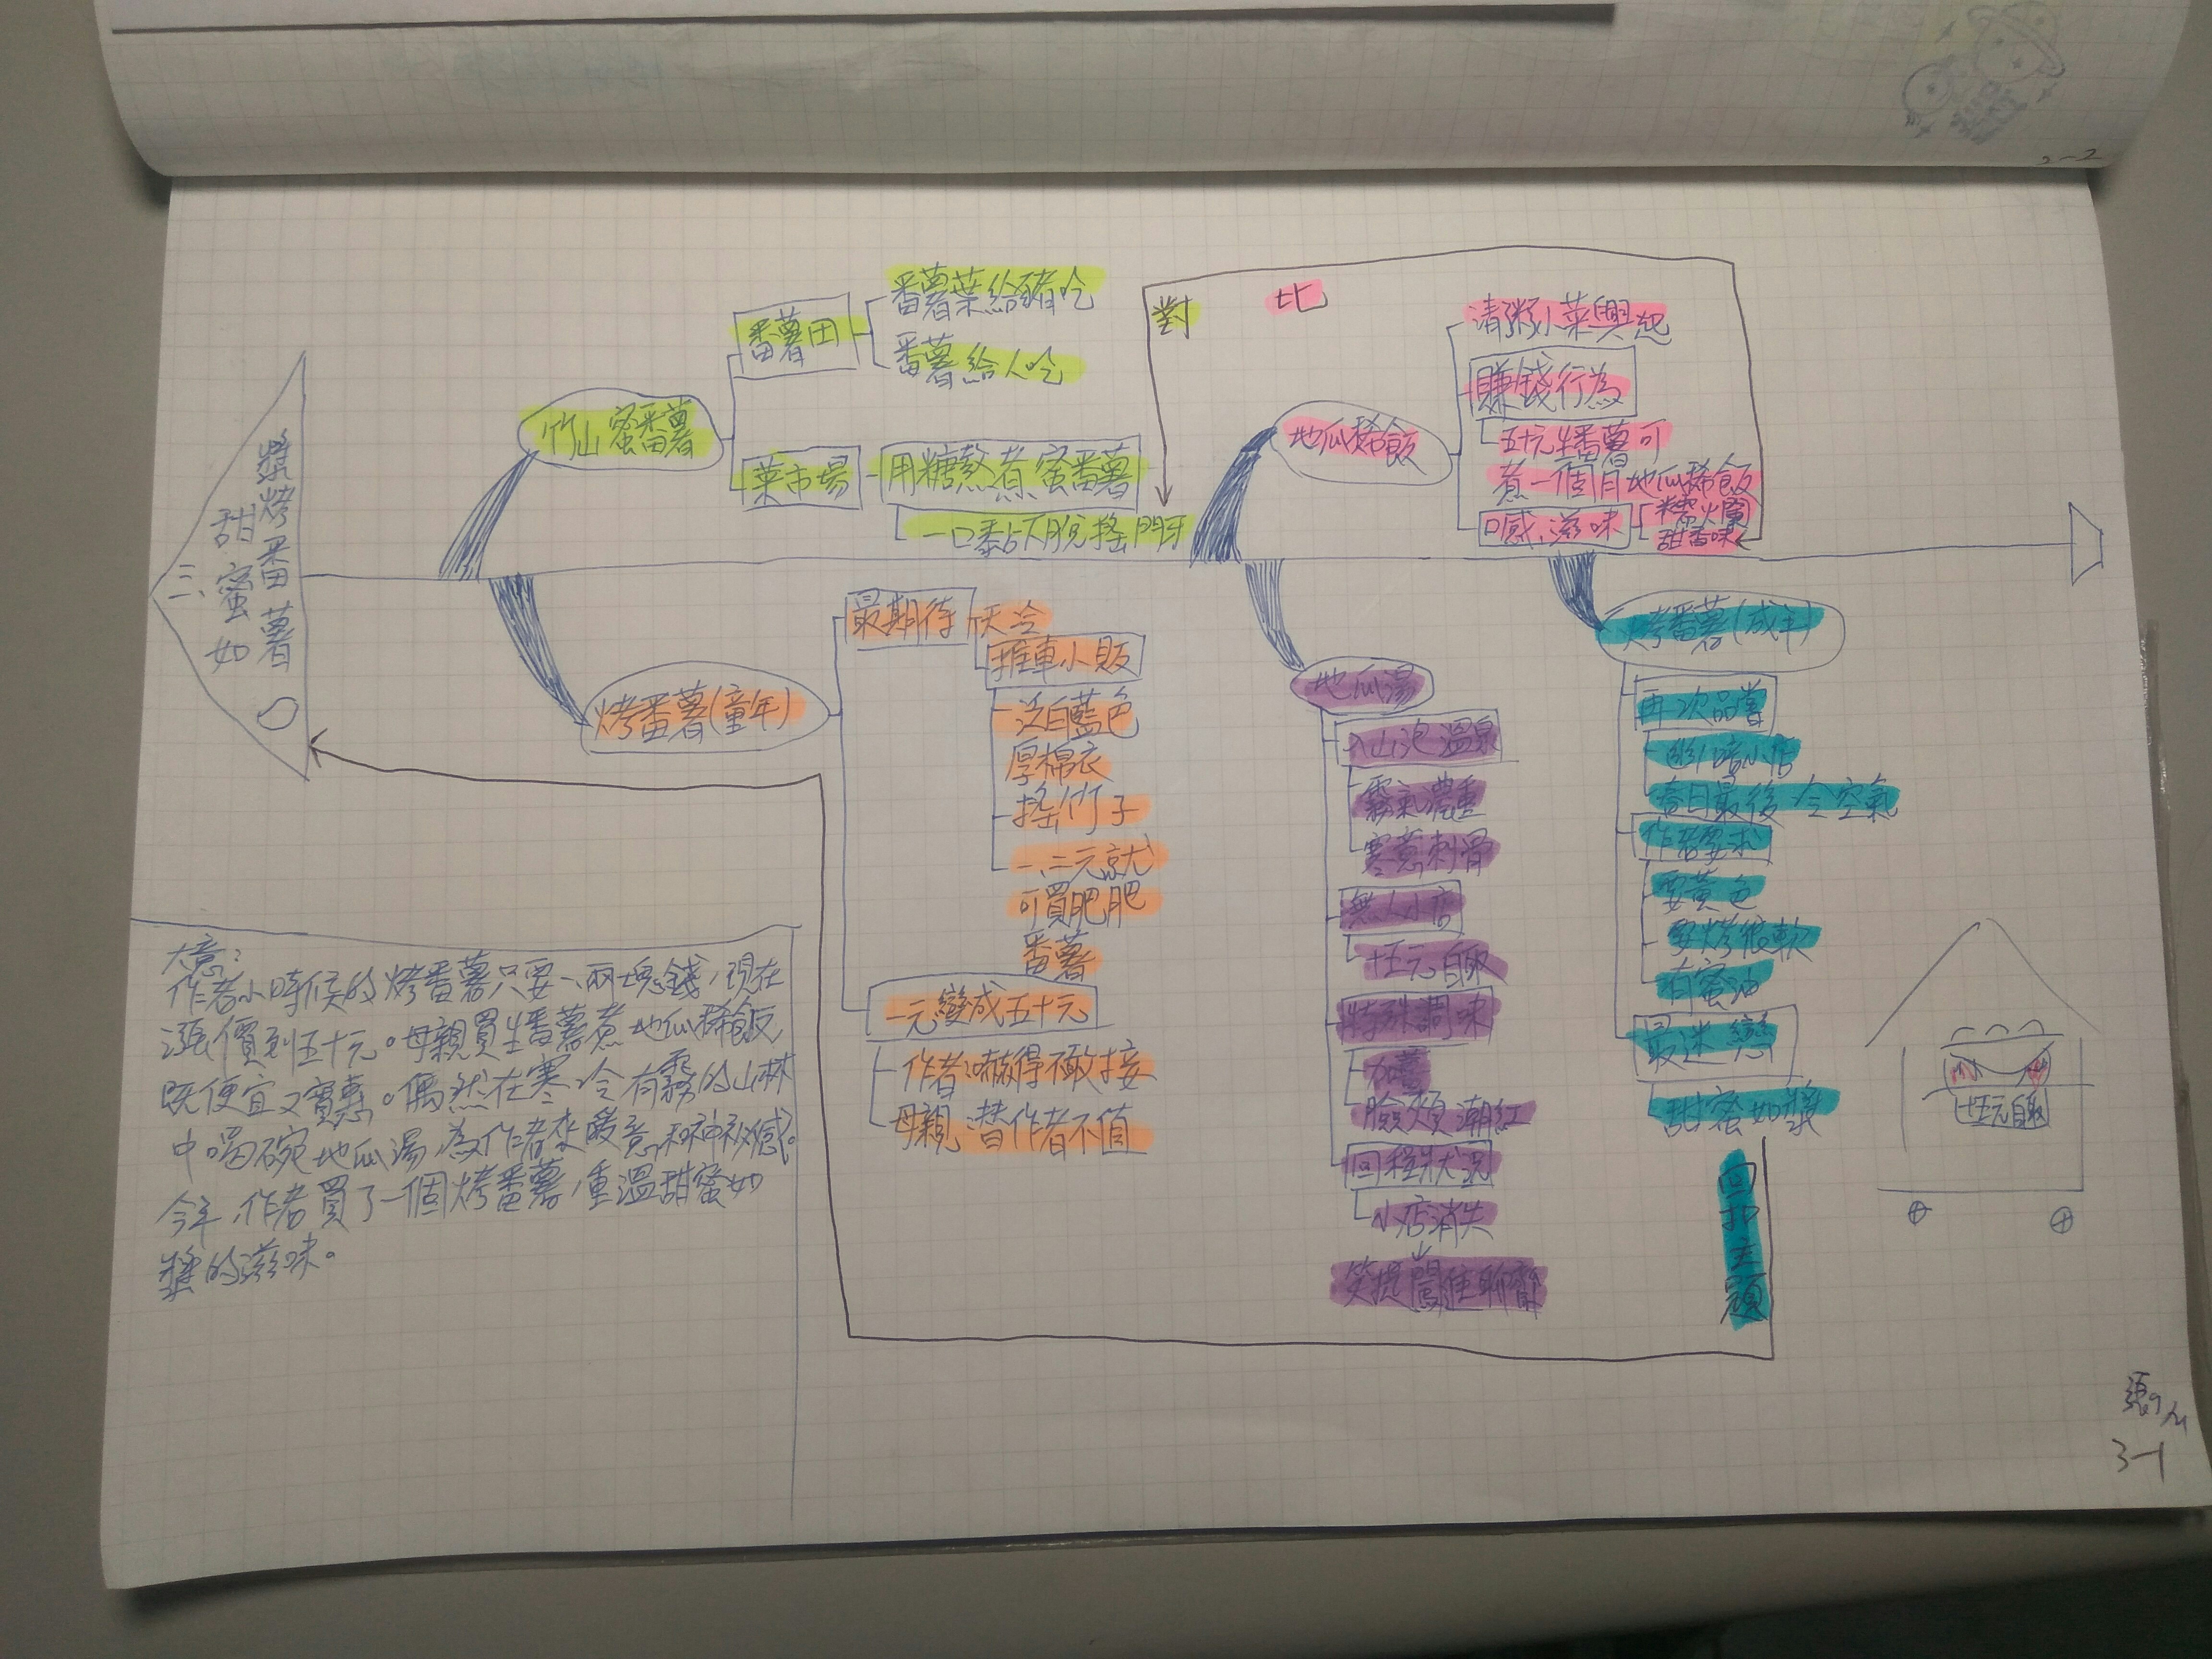 2-2
三、
甜蜜如
漿烤番薯
竹山蜜番薯
番薯田
番薯葉給豬吃
番薯給人吃
菜市場
用糖熬煮蜜番薯
一口黏下脫搖門牙
對
比
地瓜稀飯
清粥小菜興起
賺錢行為
五十元生番薯可
煮一個月地瓜稀飯
口感、滋味
甜香味
烤番薯(童年)
最期待
天冷
推車小販
泛白藍色
厚棉衣
搖竹子
一、二元就
可買肥肥
番薯
一元變成五十元
作者:嚇得不敢接
母親:替作者不值
地瓜湯
入山泡溫泉
霧氣濃重
寒意刺骨
無人小店
十五元自取
特殊調味
加薑
臉頰潮紅
回程狀況
小店消失
笑提誤住聊齋
烤番薯(成年)
再次品嘗
幽暗小店
春日最後冷空氣
作者要求
要黃色
要烤很軟
有蜜油
最迷戀
甜蜜如漿
回扣主題
十五元自取
大意:
作者小時候的烤番薯只要一、兩塊錢,現在
漲價到五十元。母親買生番薯煮地瓜稀飯
既便宜又實惠。偶然在寒冷有霧的山林
中喝碗地瓜湯,為作者添暖意和神祕感。
今年,作者買了一個烤番薯,重溫甜蜜如
漿的滋味。
3-1